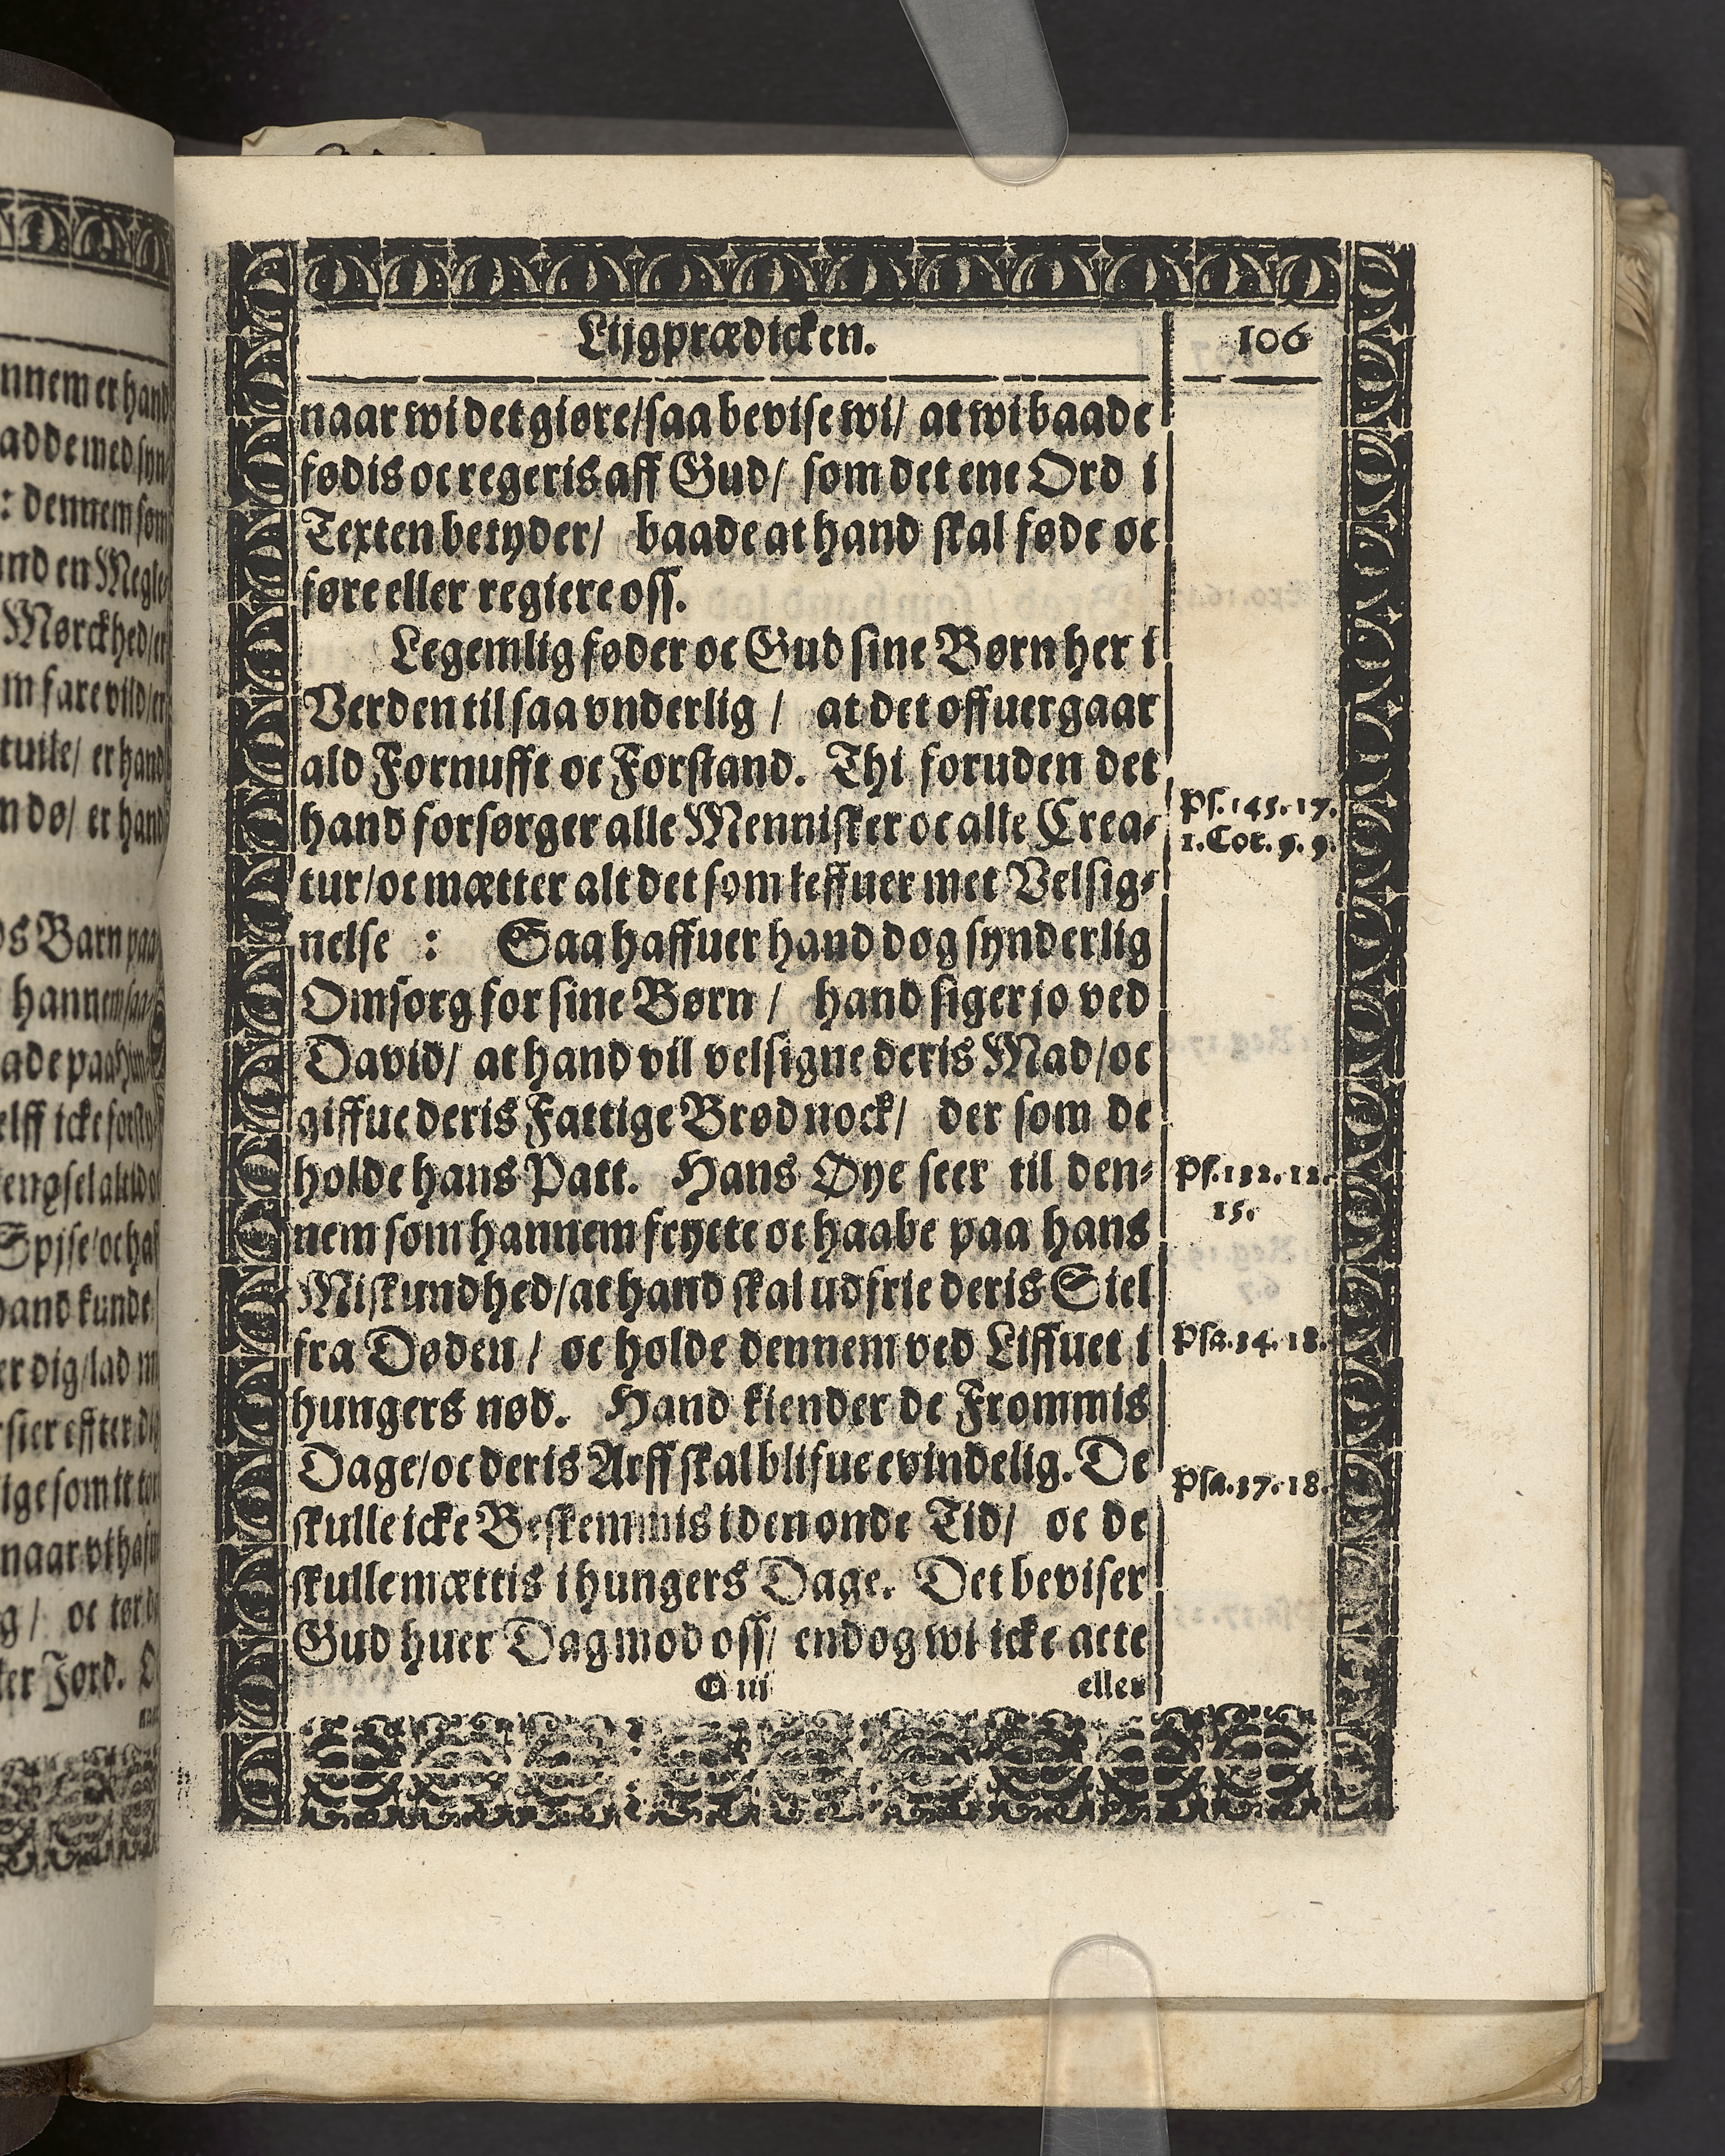 Lijgprædicken.
106
naar wi det giøre/saa bevise wi/ at wi baade
fødis oc regeris aff Gud/ som det ene Ord i
Texten betyder/ baade at hand skal føde oc
føre eller regiere oss.
Legemlig føder oc Gud sine Børn her i
Verden til saa vnderlig / at det offuergaar
ald Fornufft oc Forstand. Thi foruden det
hand forsørger alle Mennisker oc alle Crea-
tur/oc mætter alt det som leffuer met Velsig-
nelse : Saa haffuer hand dog synderlig
Omsorg for sine Børn / hand siger jo ved
David/ at hand vil velsigne deris Mad/oc
giffue deris Fattige Brød nock/ der som de
holde hans Patt. Hans Øye seer til den-
nem som hannem fryete oc haabe paa hans
Miskundhed/at hand skal udfrie deris Siel
fra Døden / oc holde dennem ved Liffuet i
hungers nød. Hand kiender de Frommis
Dage/oc deris Arff skal blifue evindelig. De
skulle icke Beskemmis i den onde Tid/ oc de
skulle mættis i hungers Dage. Det beviser
Gud huer Dag mod oss/ endog wi icke acte
G iii
eller
Ps. 145. 17.
1. Cor. 9. 9.
Ps. 132. 12.
15.
Psa. 34. 18.
Psa. 37. 18.